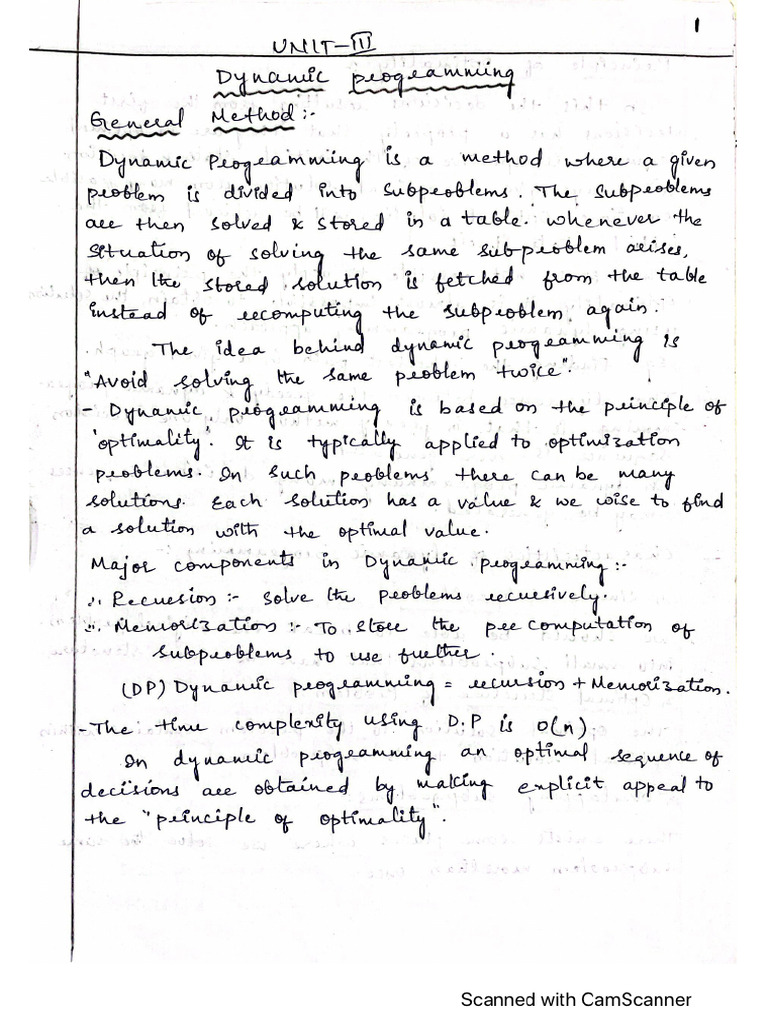 1
UNIT-III
Dynamic programming
General Method:-
Dynamic Programming is a method where a given
problem is divided into subproblems. The subproblems
are then solved & stored in a table. whenever the
situation of solving the same subproblem arises,
then the stored solution is fetched from the table
instead of recomputing the subproblem again.
The idea behind dynamic programming is
"Avoid solving the same problem twice".
- Dynamic programming is based on the principle of
'optimality'. It is typically applied to optimization
problems. In such problems there can be many
solutions. Each solution has a value & we wise to find
a solution with the optimal value.
Major components in Dynamic programming:-
∴ Recursion:- Solve the problems recursively.
∴ Memorization:- To store the pre computation of
subproblems to use further.
(DP) Dynamic programming = recursion + Memorization.
- The time complexity using D.P is O(n).
In dynamic programming an optimal sequence of
decisions are obtained by making explicit appeal to
the "principle of optimality".
Scanned with CamScanner